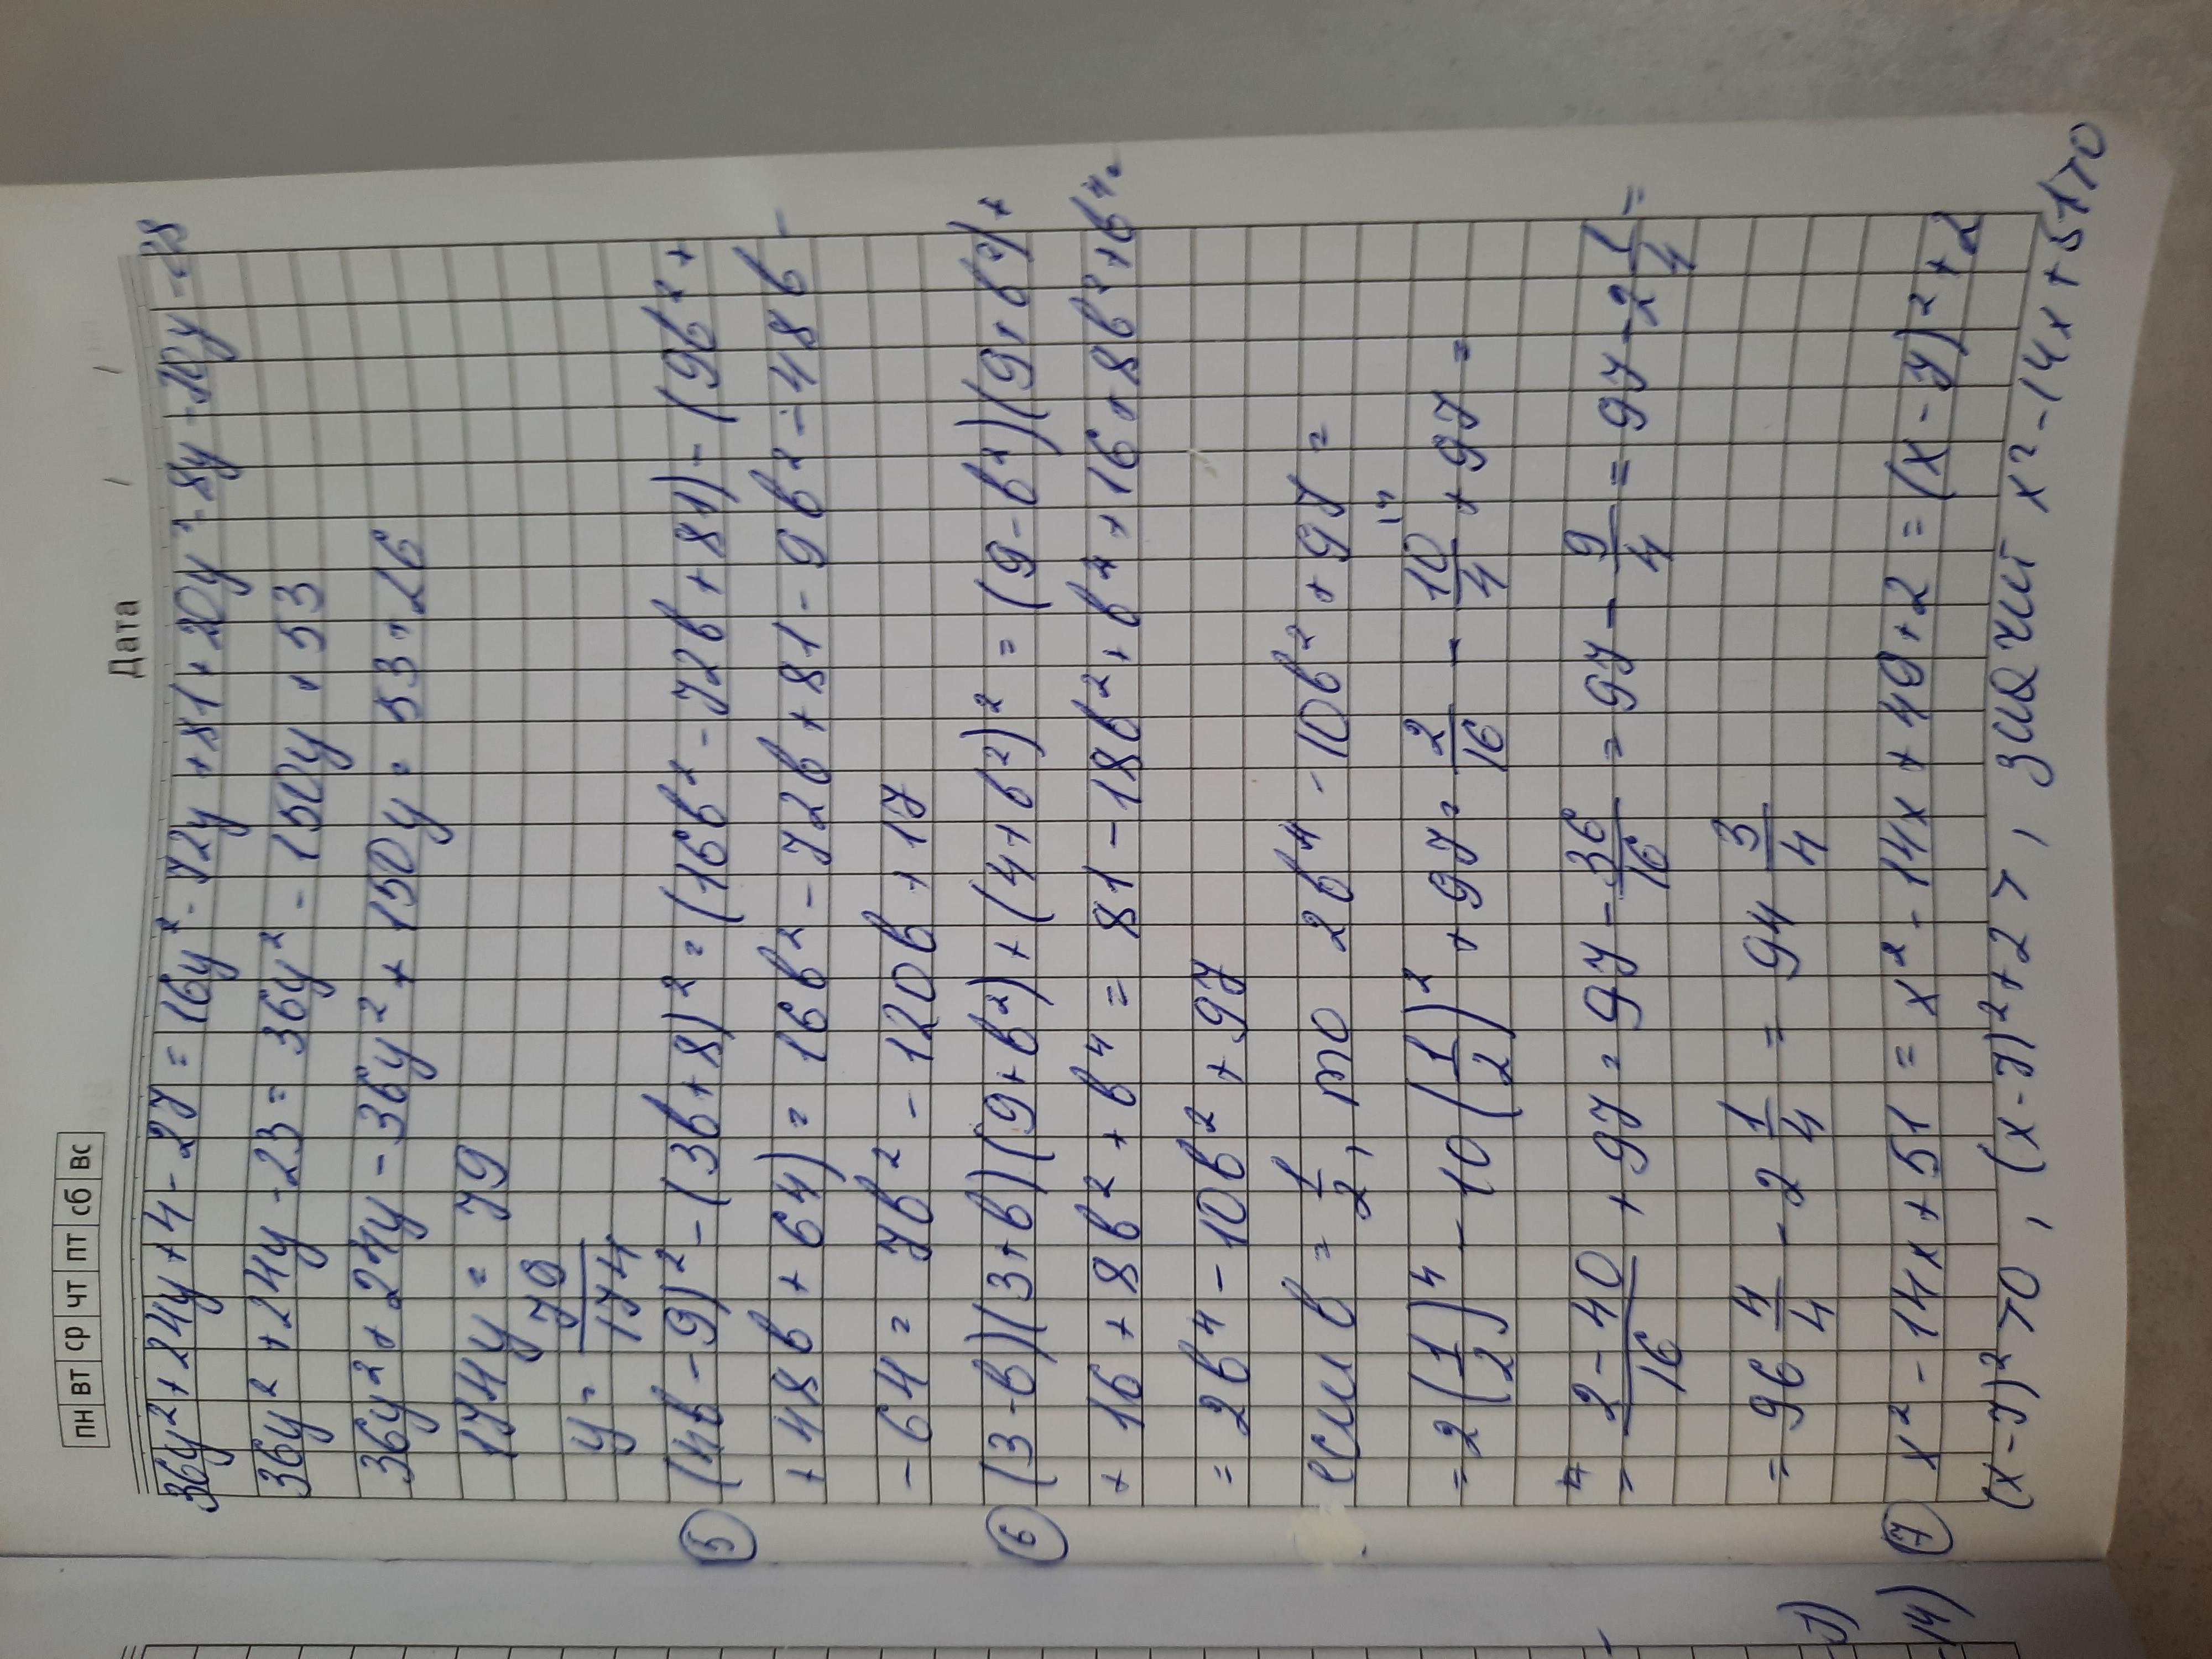 Дата
пн вт ср чт пт сб вс
36y² + 24y + 4 - 27 = 16y² - 72y + 81 + 20y² - 8y - 70y - 28
36y² + 24y - 23 = 36y² - 150y + 53
36y² + 24y - 36y² + 150y = 53 + 26
174y = 79
y = 79/174
⑤ (4b - 9)² - (3b + 8)² = (16b² - 72b + 81) - (9b² +
+ 48b + 64) = 16b² - 72b + 81 - 9b² - 48b -
- 64 = 7b² - 120b + 17
⑥ (3 - b)(3 + b)(9 + b²) + (4 + b²)² = (9 - b²)(9 + b²) +
+ 16 + 8b² + b⁴ = 81 - 18b² + b⁴ + 16 + 8b² + b⁴ =
= 2b⁴ - 10b² + 97
если b = 1/2, то 2b⁴ - 10b² + 97 =
= 2(1/2)⁴ - 10(1/2)² + 97 = 2/16 - 10/4 + 97 =
= 2 - 40/16 + 97 = 97 - 36/16 = 97 - 9/4 = 97 - 2 1/4 =
= 96 4/4 - 2 1/4 = 94 3/4
⑦ x² - 14x + 51 = x² - 14x + 49 + 2 = (x - 7)² + 2
(x - 7)² > 0, (x - 7)² + 2 >, значит x² - 14x + 51 > 0